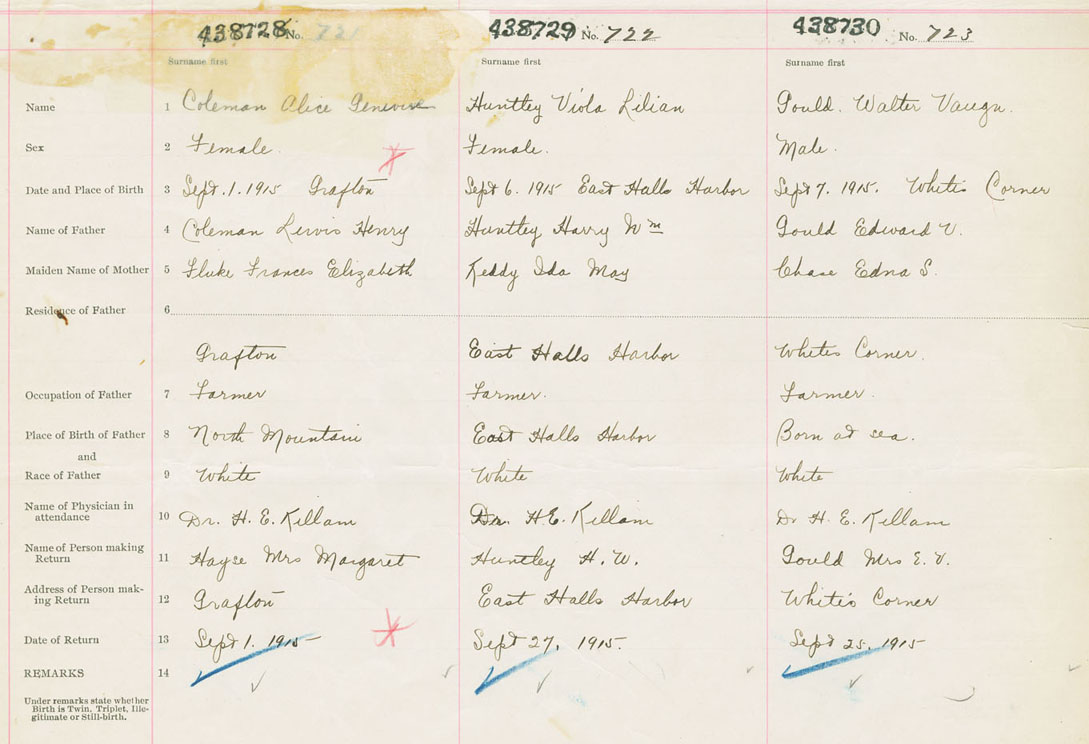 438728 No. 721 438729 No. 722 438730 No. 723
Surname first Surname first Surname first
Name 1 Coleman Alice Genevive Huntley Viola Lilian Gould. Walter Vaugn.
Sex 2 Female. Female. Male.
Date and Place of Birth 3 Sept. 1. 1915 Grafton Sept 6. 1915 East Halls Harbor Sept 7. 1915. Whites Corner
Name of Father 4 Coleman Lewis Henry Huntley Harry Wm Gould Edward V.
Maiden Name of Mother 5 Fluke Frances Elizabeth Keddy Ida May Chase Edna S.
Residence of Father 6
Grafton East Halls Harbor Whites Corner.
Occupation of Father 7 Farmer Farmer. Farmer.
Place of Birth of Father 8 North Mountain East Halls Harbor Born at sea.
and
Race of Father 9 White White White
Name of Physician in
attendance 10 Dr. H. E. Killam Dr. H.E. Killam Dr H. E. Killam
Name of Person making
Return 11 Hayse Mrs Margaret Huntley H. W. Gould Mrs E. V.
Address of Person mak-
ing Return 12 Grafton East Halls Harbor White's Corner
Date of Return 13 Sept 1. 1915 Sept 27. 1915. Sept 25. 1915
REMARKS 14
Under remarks state whether
Birth is Twin, Triplet, Ille-
gitimate or Still-birth.